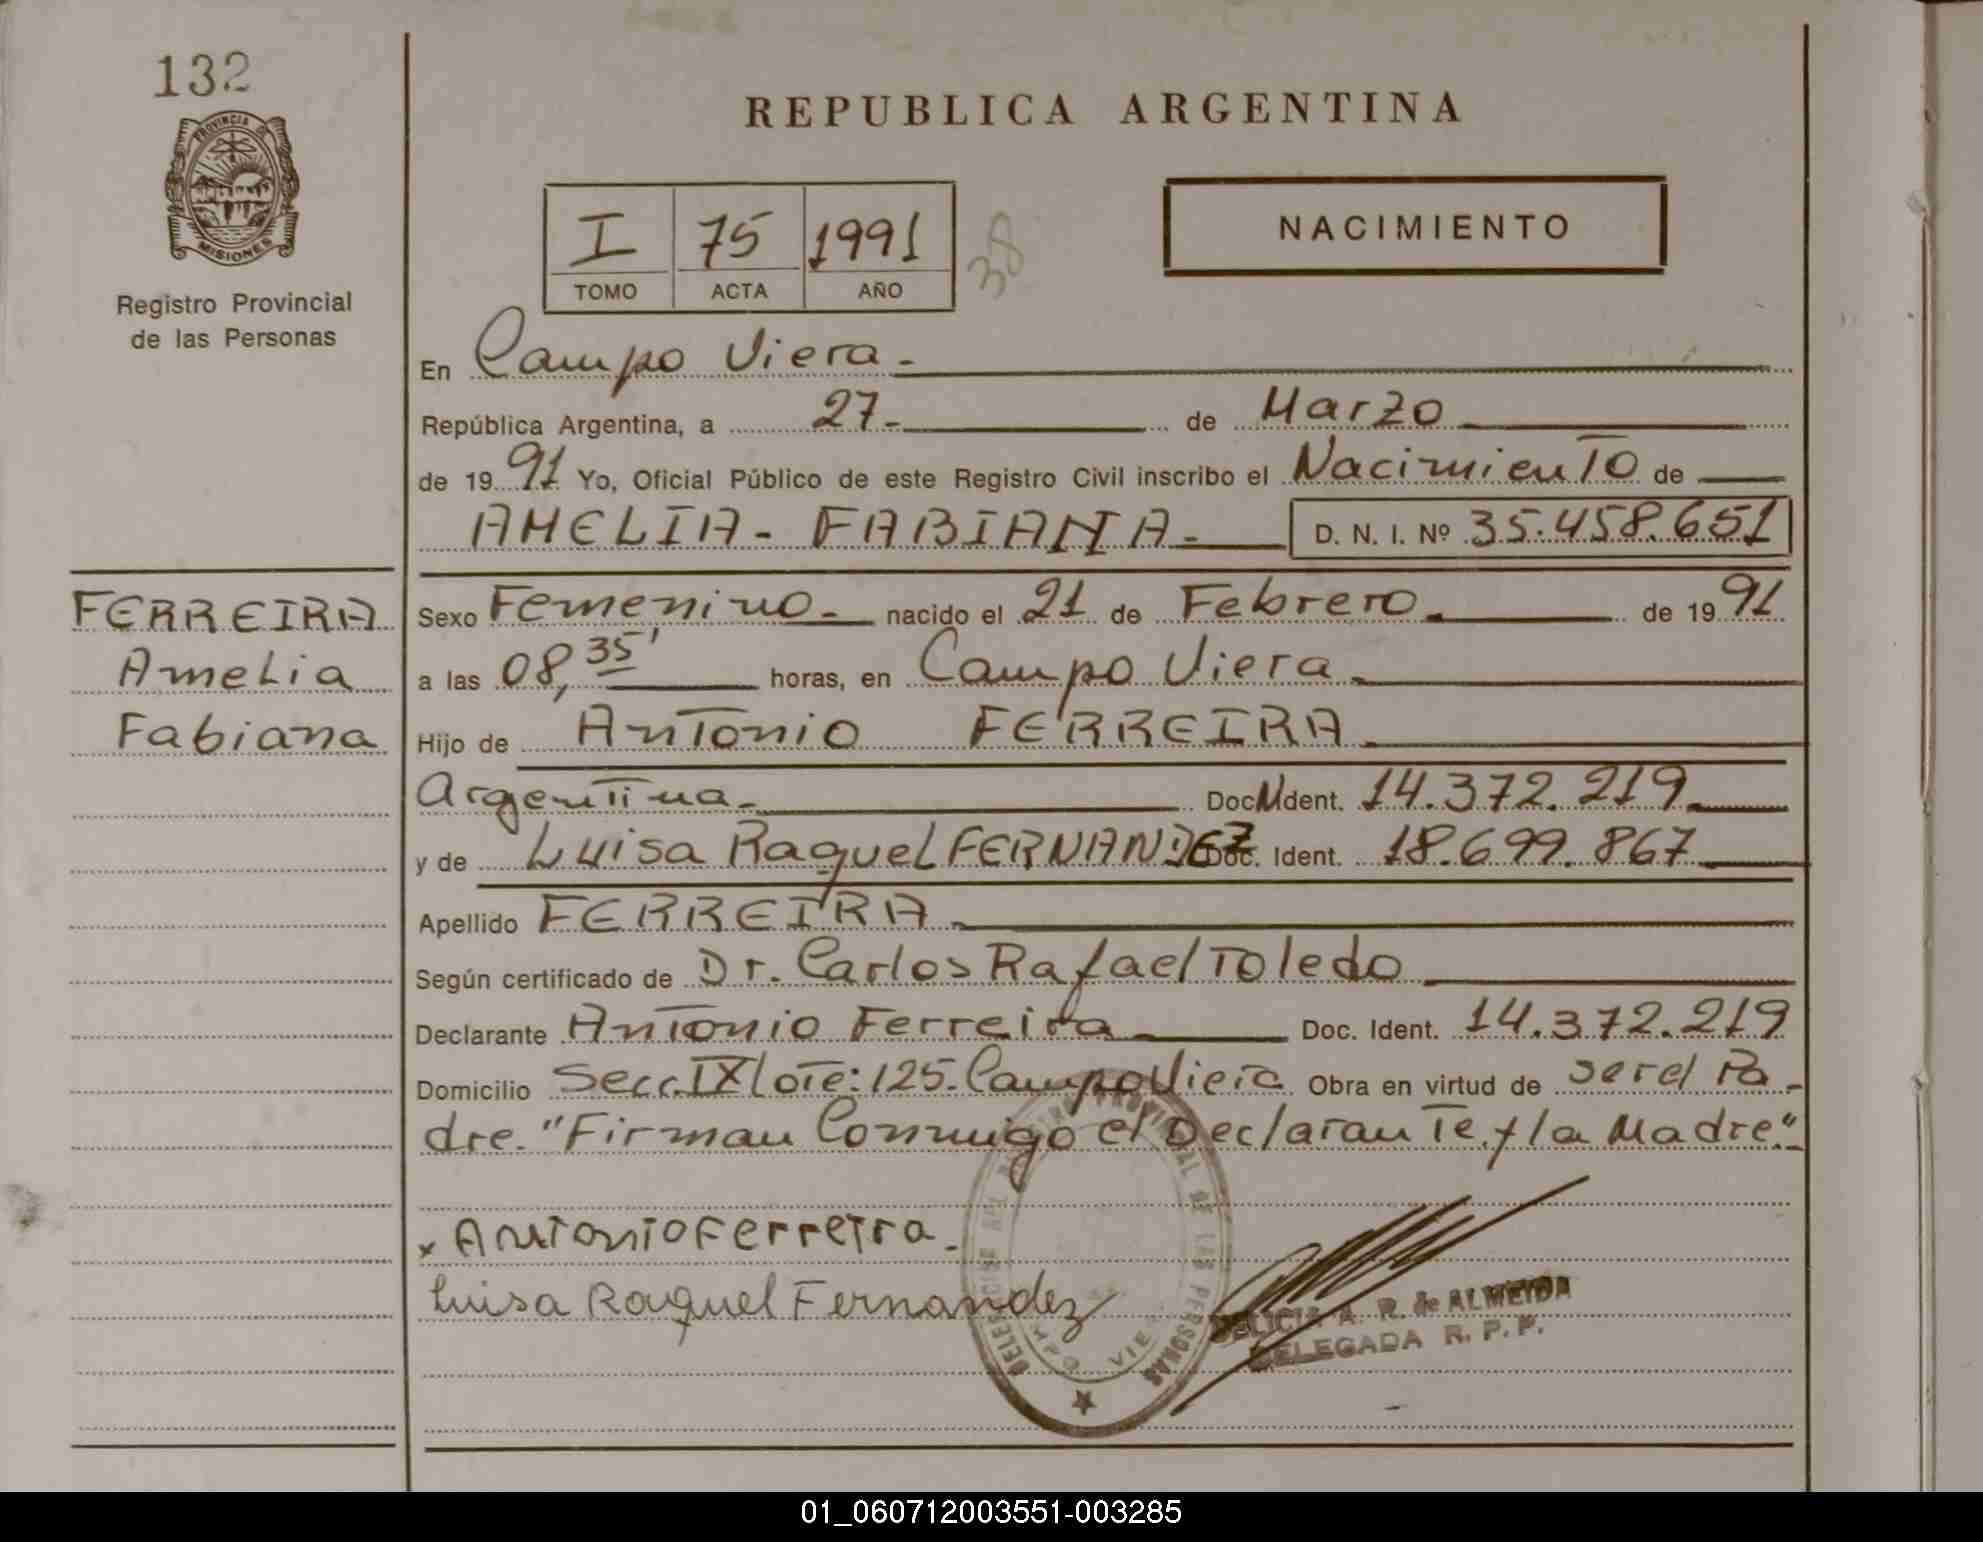 132
PROVINCIA DE
MISIONES
Registro Provincial
de las Personas
REPUBLICA ARGENTINA
I 75 1991
TOMO ACTA AÑO
38
NACIMIENTO
En Campo Viera -
República Argentina, a 27 - de Marzo
de 19 91 Yo, Oficial Público de este Registro Civil inscribo el Nacimiento de
AMELIA - FABIANA - D. N. I. Nº 35.458.651
FERREIRA
Amelia
Fabiana
Sexo Femenino - nacido el 21 de Febrero - de 19 91
a las 08, 35' horas, en Campo Viera -
Hijo de Antonio FERREIRA -
Argentina - Doc. Ident. 14.372.219 -
y de Luisa Raquel FERNANDEZ Doc. Ident. 18.699.867 -
Apellido FERREIRA -
Según certificado de Dr. Carlos Rafael Toledo
Declarante Antonio Ferreira - Doc. Ident. 14.372.219
Domicilio Secc. IX lote: 125. Campo Viera Obra en virtud de ser el Pa -
dre. "Firman Conmigo el Declarante y la Madre." -
x Antonio Ferreira -
Luisa Raquel Fernandez
PROVINCIAL DE LAS PERSONAS
DELICIA A. R. de ALMEIDA
DELEGADA R. P. P.
01_060712003551-003285